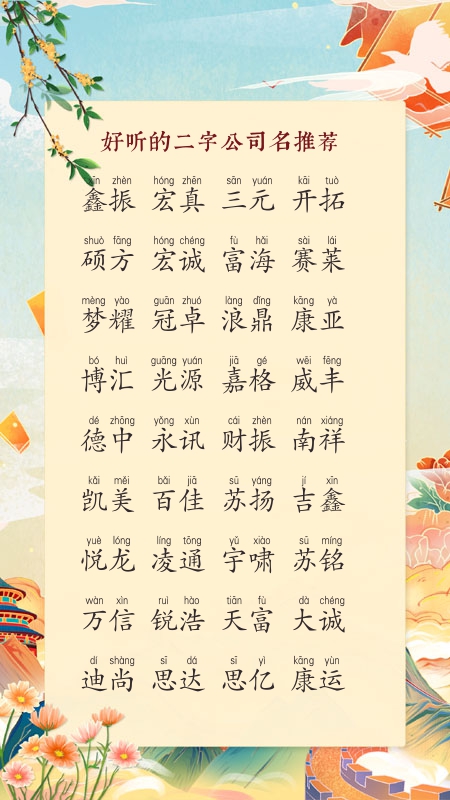 好听的二字公司名推荐
xīn zhèn hóng zhēn sān yuán kāi tuò
鑫振 宏真 三元 开拓
shuò fāng hóng chéng fù hǎi sài lái
硕方 宏诚 富海 赛莱
mèng yào guān zhuó làng dǐng kāng yà
梦耀 冠卓 浪鼎 康亚
bó huì guāng yuán jiā gé wēi fēng
博汇 光源 嘉格 威丰
dé zhōng yǒng xùn cái zhèn nán xiáng
德中 永讯 财振 南祥
kǎi měi bǎi jiā sū yáng jí xīn
凯美 百佳 苏扬 吉鑫
yuè lóng líng tōng yǔ xiào sū míng
悦龙 凌通 宇啸 苏铭
wàn xìn ruì hào tiān fù dà chéng
万信 锐浩 天富 大诚
dí shàng sī dá sī yì kāng yùn
迪尚 思达 思亿 康运